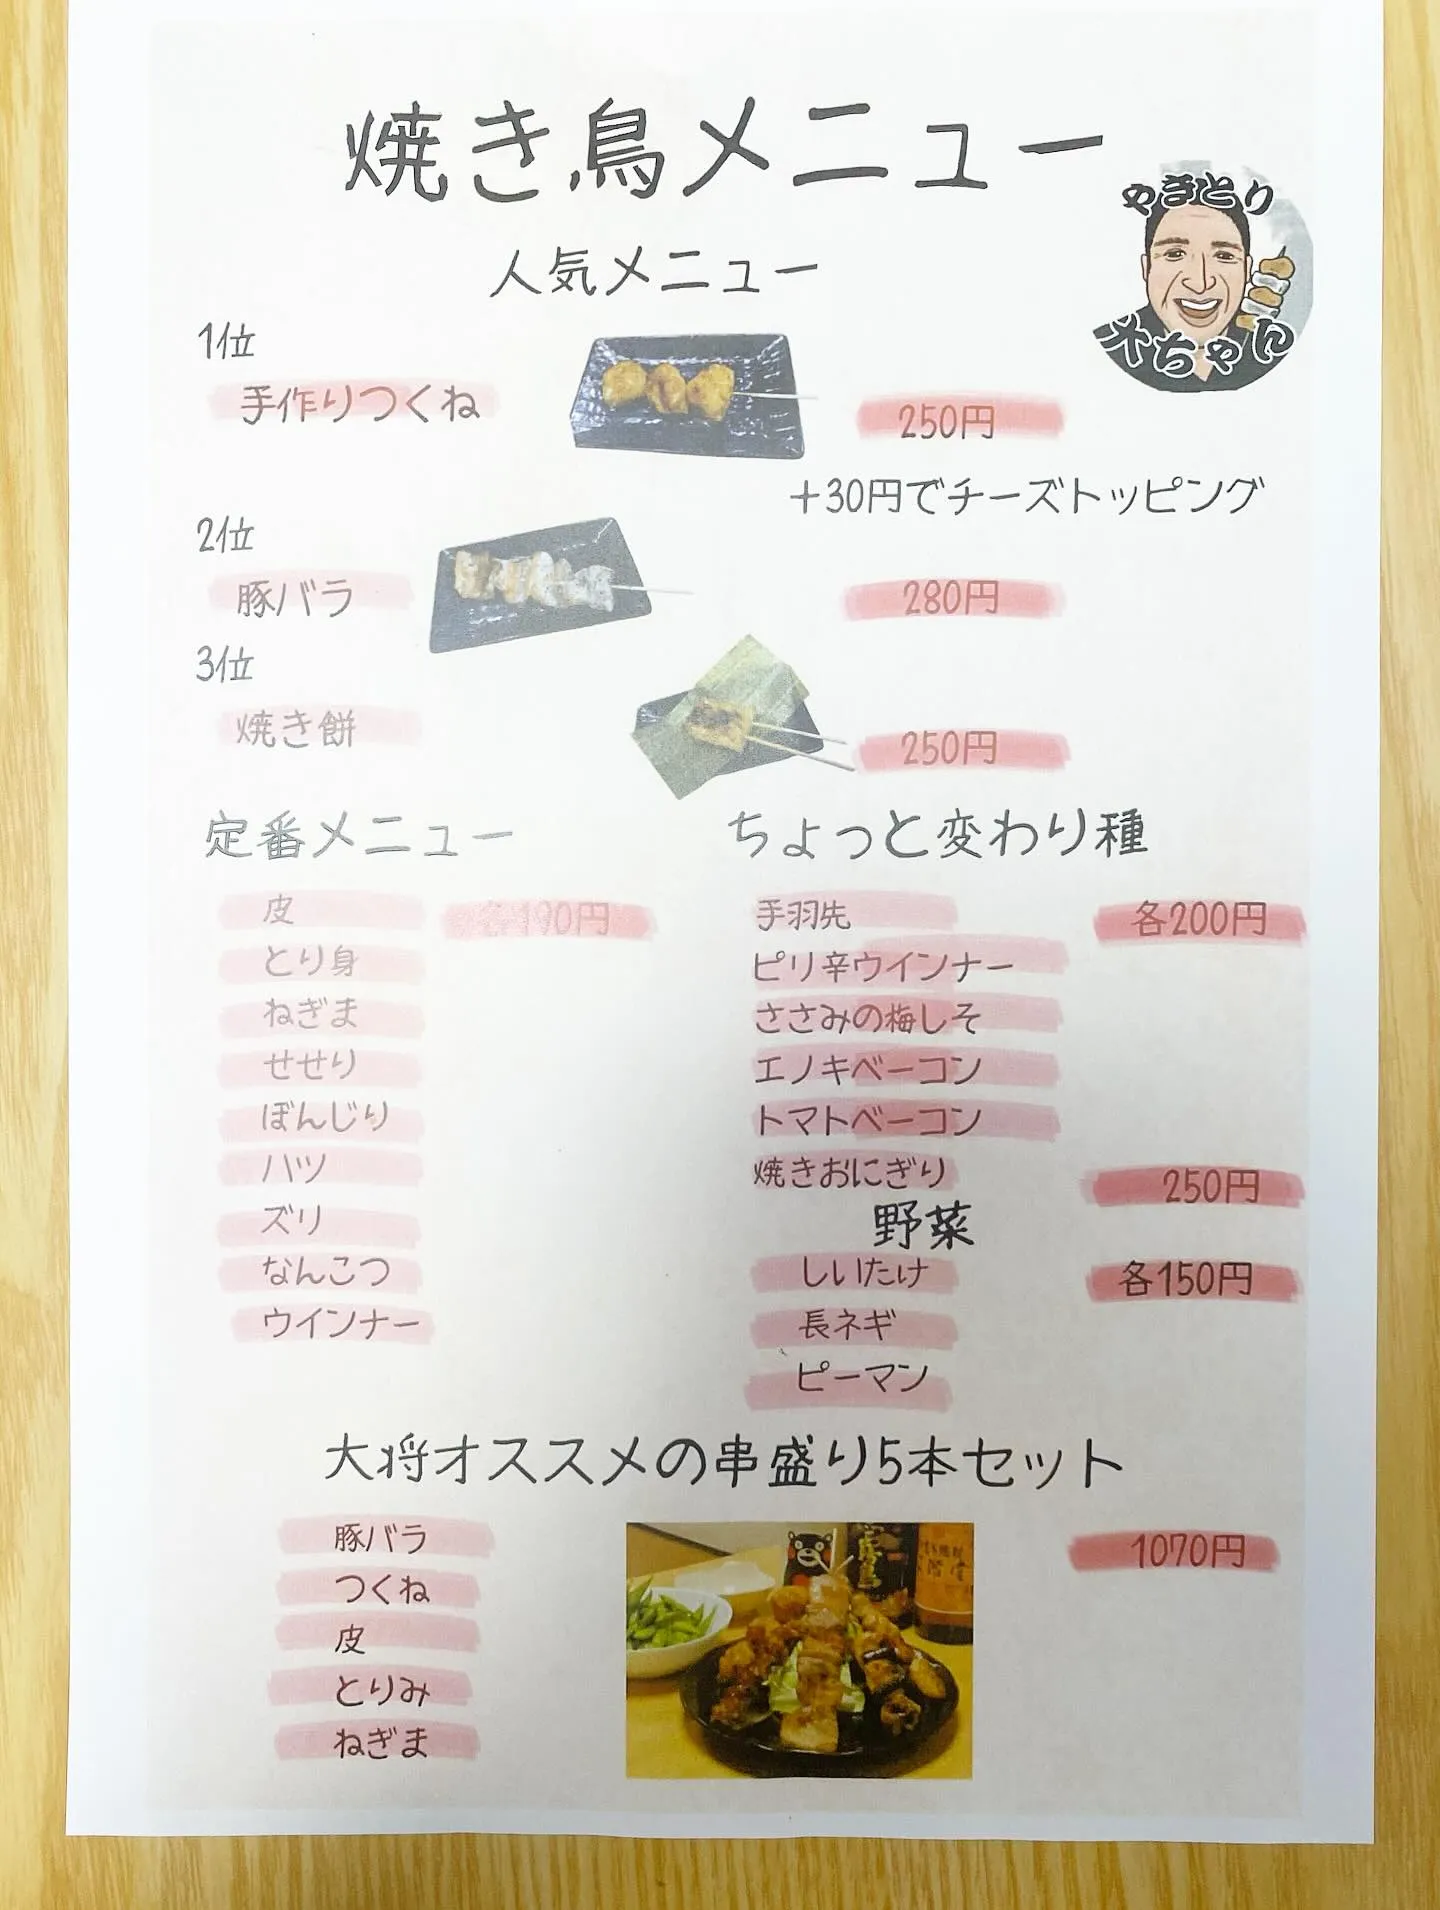 焼き鳥メニュー
やきとり
メちゃん
人気メニュー
1位
手作りつくね 250円
+30円でチーズトッピング
2位
豚バラ 280円
3位
焼き餅 250円
定番メニュー
皮 各190円
とり身
ねぎま
せせり
ぼんじり
ハツ
ズリ
なんこつ
ウインナー
ちょっと変わり種
手羽先 各200円
ピリ辛ウインナー
ささみの梅しそ
エノキベーコン
トマトベーコン
焼きおにぎり 250円
野菜
しいたけ 各150円
長ネギ
ピーマン
大将オススメの串盛り5本セット
豚バラ 1070円
つくね
皮
とりみ
ねぎま